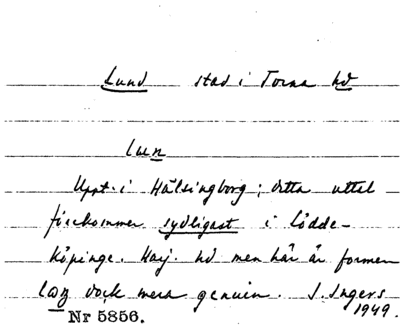 Lund stad i Torna hd
lun
Uppt. i Hälsingborg; detta uttal
förekommer sydligast i Lödde-
köpinge. Harj. hd men här är formen
dock mera genuin. I. Ingers
Nr 5856. 1949.